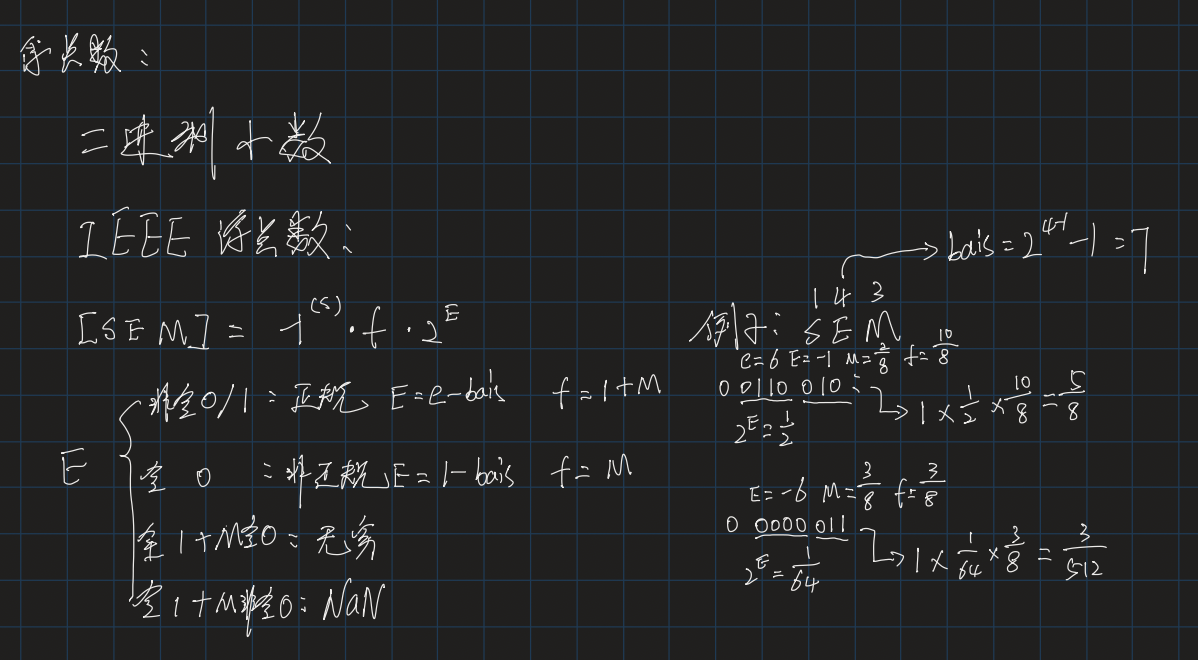 浮点数：
二进制小数
IEEE 浮点数：
[S E M] = -1^(s) · f · 2^E
E
非全0/1：正规 E=e-bais f=1+M
全 0 ：非正规 E=1-bais f=M
全1+M全0：无穷
全1+M非全0：NaN
bais=2^(4-1)-1=7
1 4 3
例子：S E M
e=6 E=-1 M=2/8 f=10/8
0 0110 010：
1×1/2×10/8=5/8
2^E=1/2
E=-6 M=3/8 f=3/8
0 0000 011
1×1/64×3/8=3/512
2^E=1/64